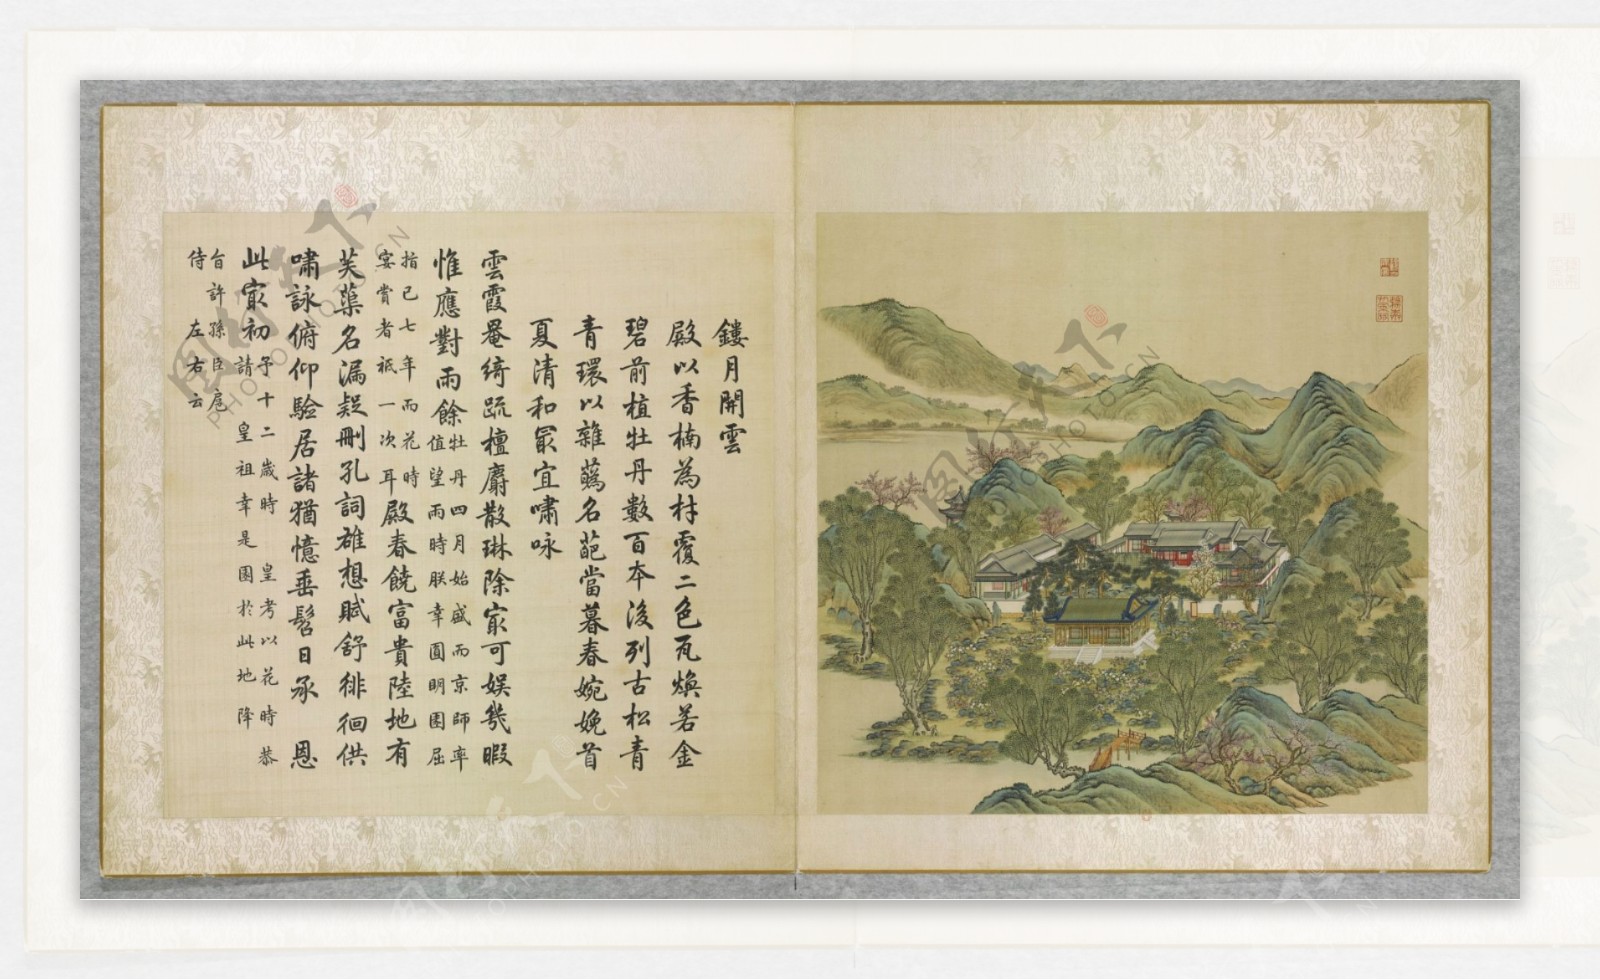 鏤月開雲
殿以香楠為材覆二色瓦煥若金
碧前植牡丹數百本後列古松青
青環以雜蘤名葩當暮春婉娩首
夏清和冣宜嘯咏
雲霞罨綺疏檀麝散琳除冣可娛幾暇
惟應對雨餘
牡丹四月始盛而京師率
值望雨時朕幸圓明園屈
指已七年而花時
宴賞者祇一次耳
殿春饒富貴陸地有
芙蕖名漏疑刪孔詞雄想賦舒徘徊供
嘯詠俯仰驗居諸猶憶垂髫日承 恩
此冣初
予十二歲時 皇考以花時恭
請 皇祖幸是園於此地降
旨許孫臣扈
侍 左右云